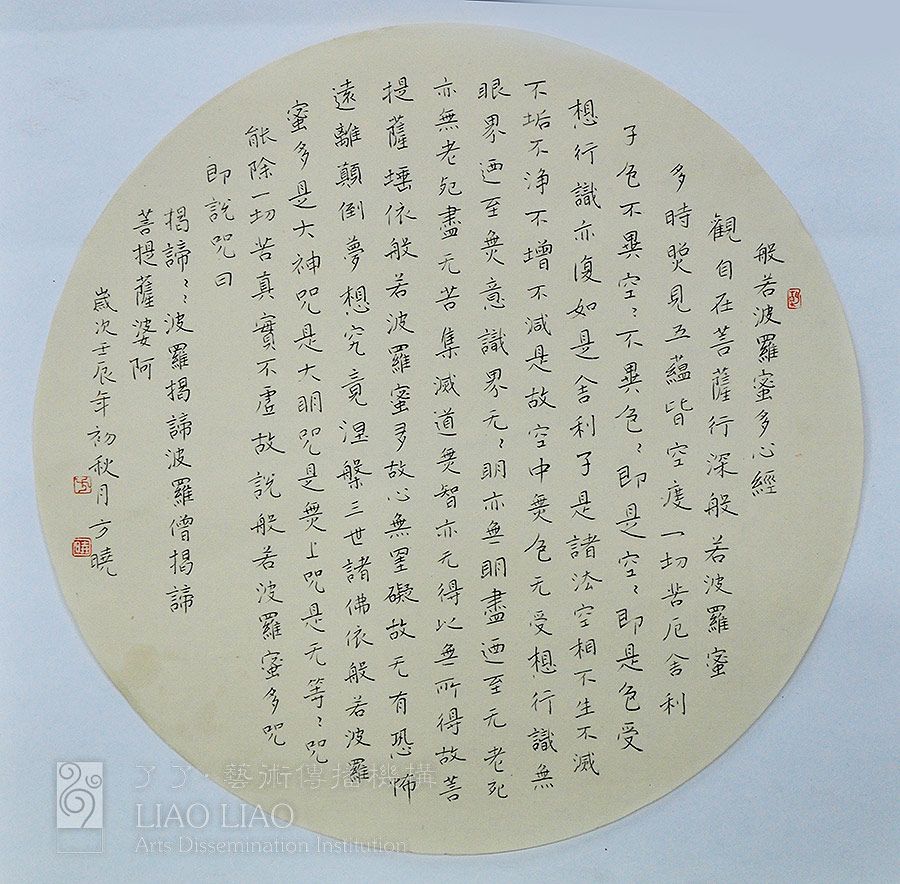 般若波羅蜜多心經
觀自在菩薩行深般若波羅蜜
多時照見五蘊皆空度一切苦厄舍利
子色不異空〻不異色〻即是空〻即是色受
想行識亦復如是舍利子是諸法空相不生不滅
不垢不淨不增不減是故空中無色无受想行識無
眼界迺至無意識界无〻明亦無明盡迺至无老死
亦無老死盡无苦集滅道無智亦无得以無所得故菩
提薩埵依般若波羅蜜多故心無罣礙故无有恐怖
遠離顛倒夢想究竟涅槃三世諸佛依般若波羅
蜜多是大神咒是大明咒是無上咒是无等〻咒
能除一切苦真實不虛故說般若波羅蜜多咒
即說咒曰
揭諦〻波羅揭諦波羅僧揭諦
菩提薩婆阿
歲次壬辰年初秋月方曉
了了·藝術傳播機構
LIAO LIAO
Arts Dissemination Institution